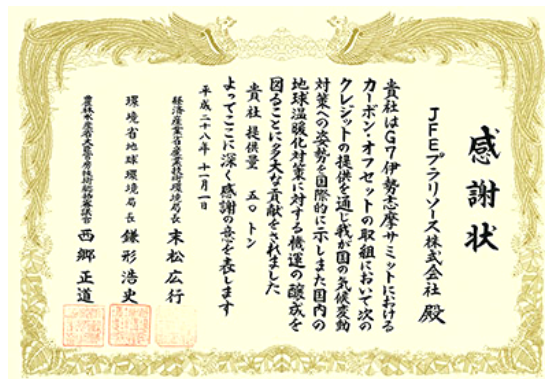 感謝状
JFEプラリソース株式会社 殿
貴社はG7伊勢志摩サミットにおける
カーボン・オフセットの取組において次の
クレジットの提供を通じ我が国の気候変動
対策への姿勢を国際的に示しまた国内の
地球温暖化対策に対する機運の醸成を
図ることに多大な貢献をされました
貴社 提供量 五〇トン
よってここに深く感謝の意を表します
平成二十八年 十一月一日
経済産業省産業技術環境局長 末松広行
環境省地球環境局長 鎌形浩史
農林水産省大臣官房技術総括審議官 西郷正道